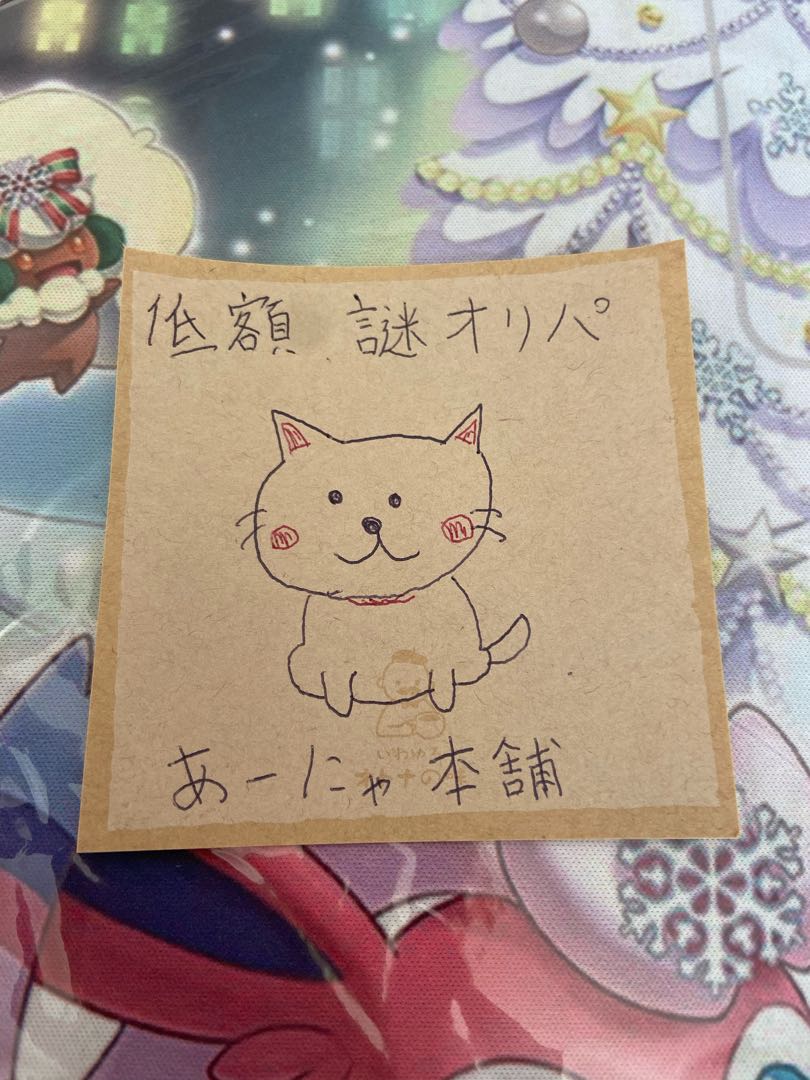 低額 謎オリパ
いわゆる
あーにゃ本舗